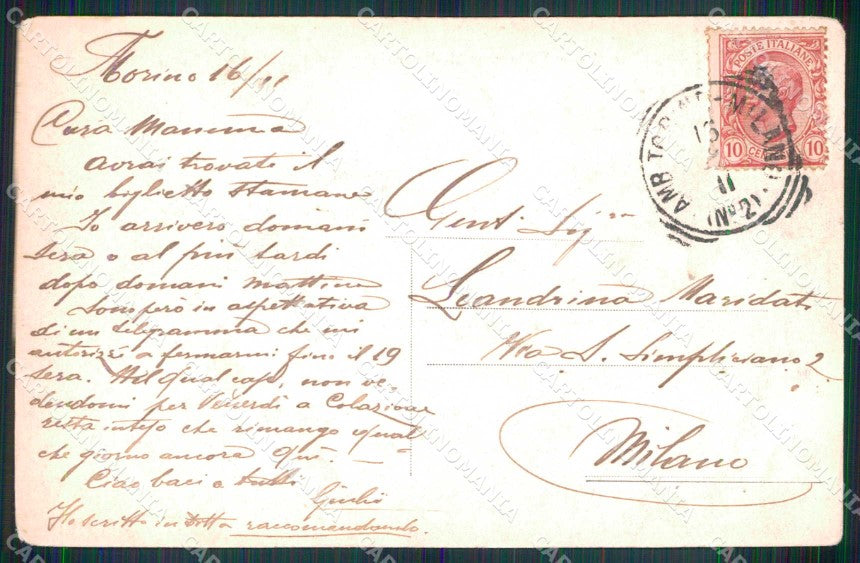 Torino 16/11
Cara Mammina
Avrai trovato il
mio biglietto stamane
Io arriverò domani
sera o al più tardi
dopo domani mattina
Sono però in aspettativa
di un telegramma che mi
autorizzi a fermarmi fino il 19
sera. Nel qual caso, non ve-
dendomi per Venerdì a Colazione
resta inteso che rimango qual
che giorno ancora qui. —
Ciao baci a tutti
Giulio
Ho scritto in ditta raccomandando.
Gent Sigra
Leandrina Maridati
Via S. Simpliciano 2
Milano
POSTE ITALIANE
10 CENT 10
AMB TORINO - MILANO (N° 2)
16
11
CARTOLINOMANIA